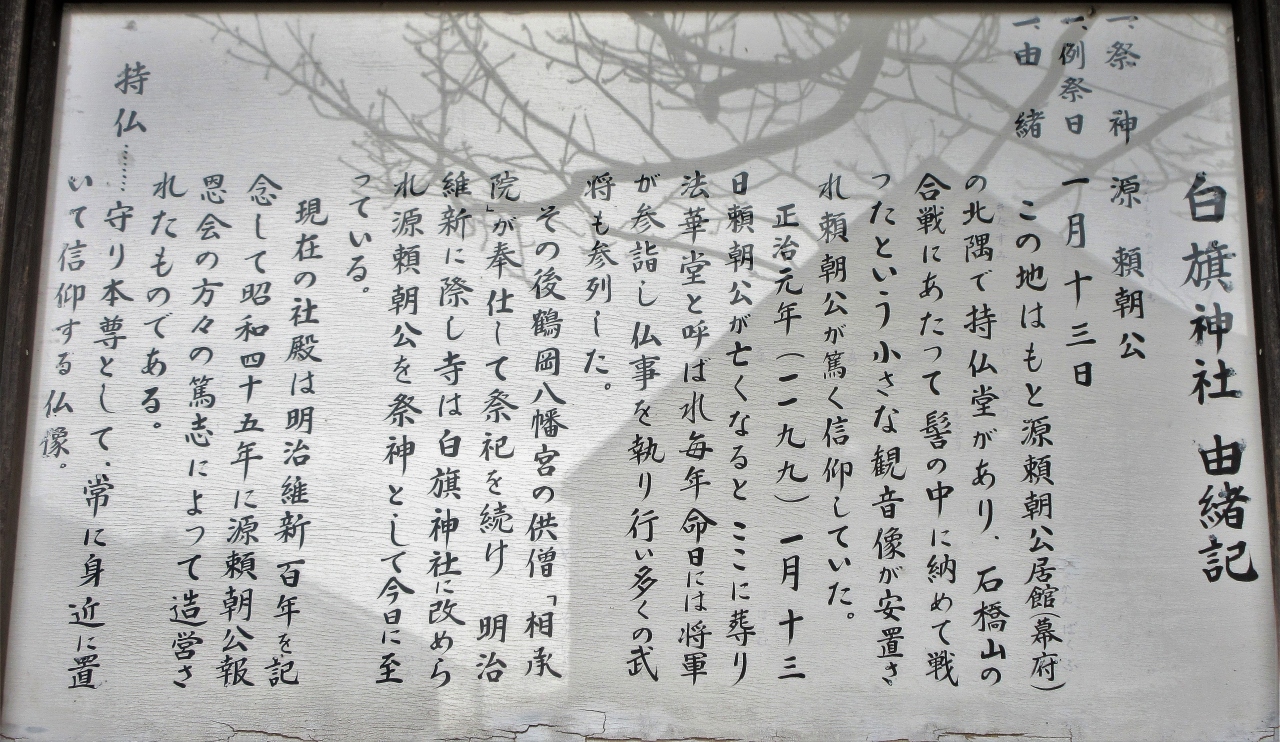 白旗神社 由緒記
一、祭 神 源 頼朝公
一、例祭日 一月十三日
一、由 緒 この地はもと源頼朝公居館(幕府)
の北隅で持仏堂があり、石橋山の
合戦にあたって髻の中に納めて戦
ったという小さな観音像が安置さ
れ頼朝公が篤く信仰していた。
正治元年(一一九九)一月十三
日頼朝公が亡くなるとここに葬り
法華堂と呼ばれ毎年命日には将軍
が参詣し仏事を執り行い多くの武
将も参列した。
その後鶴岡八幡宮の供僧「相承
院」が奉仕して祭祀を続け 明治
維新に際し寺は白旗神社に改めら
れ源頼朝公を祭神として今日に至
っている。
現在の社殿は明治維新百年を記
念して昭和四十五年に源頼朝公報
恩会の方々の篤志によって造営さ
れたものである。
持仏……守り本尊として、常に身近に置
いて信仰する仏像。